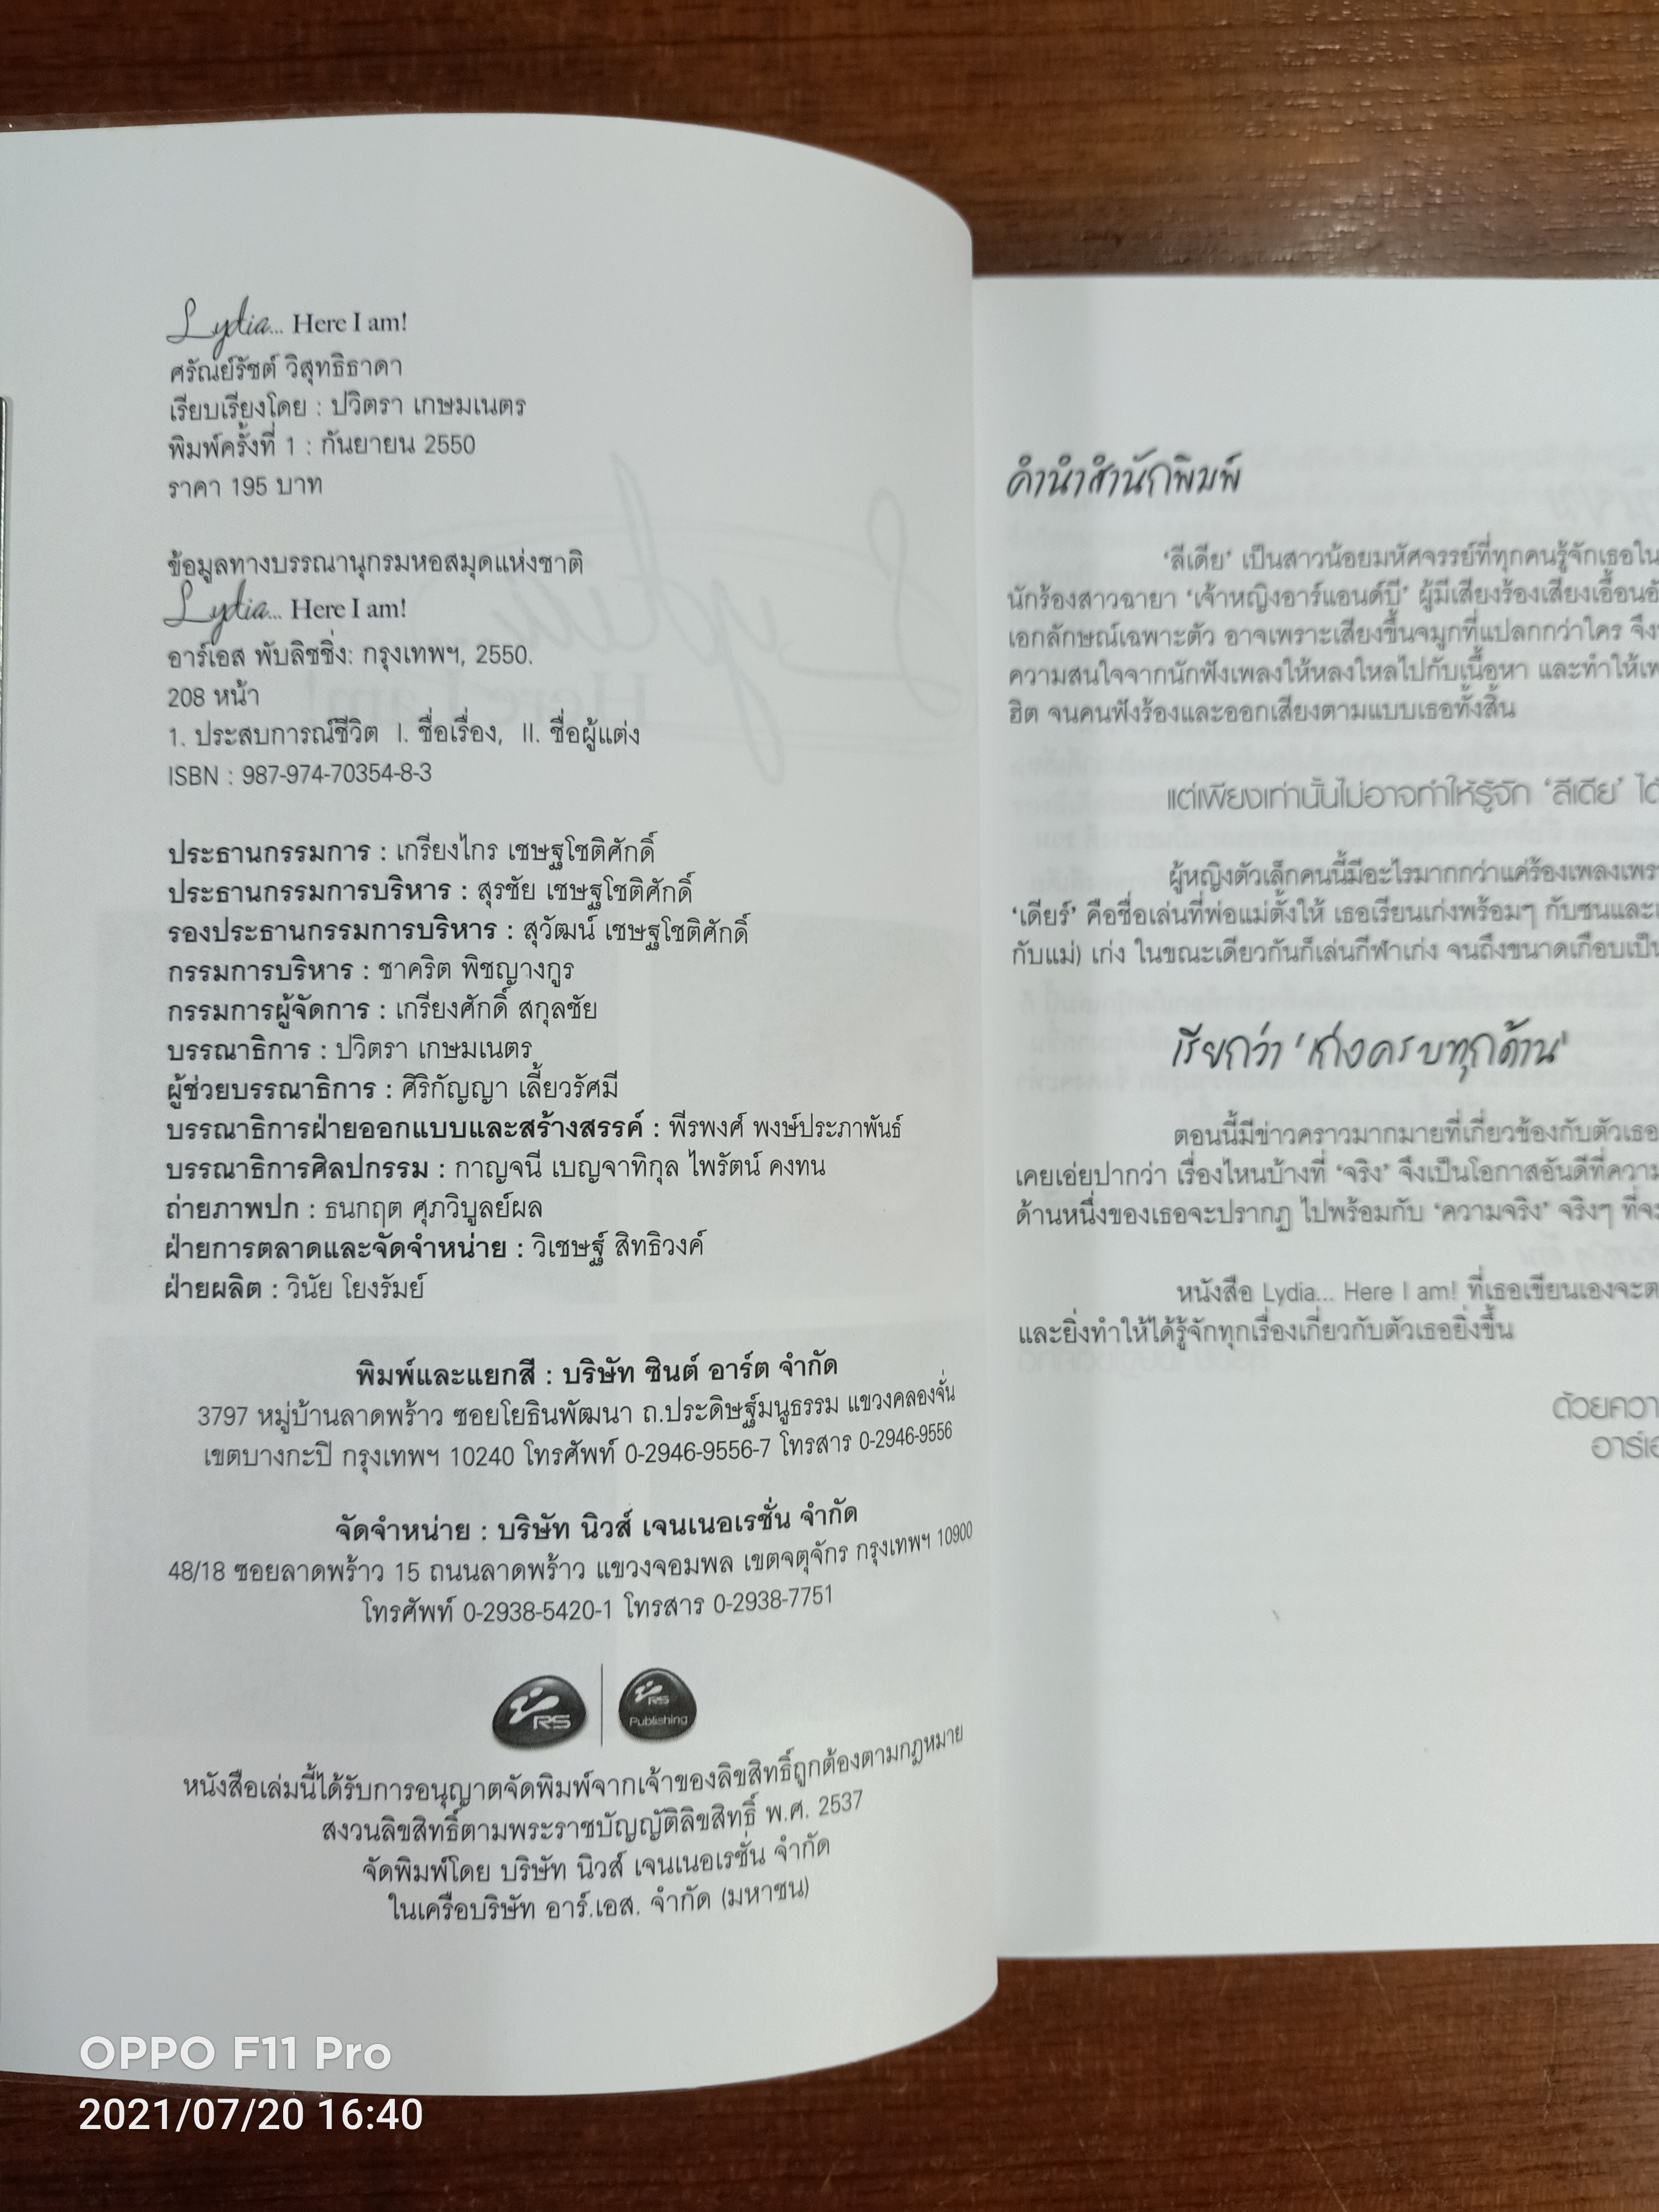 Lydia... Here I am!
ศรัณย์รัชต์ วิสุทธิธาดา
เรียบเรียงโดย : ปวิตรา เกษมเนตร
พิมพ์ครั้งที่ 1 : กันยายน 2550
ราคา 195 บาท
ข้อมูลทางบรรณานุกรมหอสมุดแห่งชาติ
Lydia... Here I am!
อาร์เอส พับลิชชิ่ง: กรุงเทพฯ, 2550.
208 หน้า
1. ประสบการณ์ชีวิต I. ชื่อเรื่อง, II. ชื่อผู้แต่ง
ISBN : 987-974-70354-8-3
ประธานกรรมการ : เกรียงไกร เชษฐโชติศักดิ์
ประธานกรรมการบริหาร : สุรชัย เชษฐโชติศักดิ์
รองประธานกรรมการบริหาร : สุวัฒน์ เชษฐโชติศักดิ์
กรรมการบริหาร : ชาคริต พิชญางกูร
กรรมการผู้จัดการ : เกรียงศักดิ์ สกุลชัย
บรรณาธิการ : ปวิตรา เกษมเนตร
ผู้ช่วยบรรณาธิการ : ศิริกัญญา เลี้ยวรัศมี
บรรณาธิการฝ่ายออกแบบและสร้างสรรค์ : พีรพงศ์ พงษ์ประภาพันธ์
บรรณาธิการศิลปกรรม : กาญจนี เบญจาทิกุล ไพรัตน์ คงทน
ถ่ายภาพปก : ธนกฤต ศุภวิบูลย์ผล
ฝ่ายการตลาดและจัดจำหน่าย : วิเชษฐ์ สิทธิวงค์
ฝ่ายผลิต : วินัย โยงรัมย์
พิมพ์และแยกสี : บริษัท ซินต์ อาร์ต จำกัด
3797 หมู่บ้านลาดพร้าว ซอยโยธินพัฒนา ถ.ประดิษฐ์มนูธรรม แขวงคลองจั่น
เขตบางกะปิ กรุงเทพฯ 10240 โทรศัพท์ 0-2946-9556-7 โทรสาร 0-2946-9556
จัดจำหน่าย : บริษัท นิวส์ เจนเนอเรชั่น จำกัด
48/18 ซอยลาดพร้าว 15 ถนนลาดพร้าว แขวงจอมพล เขตจตุจักร กรุงเทพฯ 10900
โทรศัพท์ 0-2938-5420-1 โทรสาร 0-2938-7751
RS
RS Publishing
หนังสือเล่มนี้ได้รับการอนุญาตจัดพิมพ์จากเจ้าของลิขสิทธิ์ถูกต้องตามกฎหมาย
สงวนลิขสิทธิ์ตามพระราชบัญญัติลิขสิทธิ์ พ.ศ. 2537
จัดพิมพ์โดย บริษัท นิวส์ เจนเนอเรชั่น จำกัด
ในเครือบริษัท อาร์.เอส. จำกัด (มหาชน)
คำนำสำนักพิมพ์
‘ลีเดีย’ เป็นสาวน้อยมหัศจรรย์ที่ทุกคนรู้จักเธอใน
นักร้องสาวฉายา ‘เจ้าหญิงอาร์แอนด์บี’ ผู้มีเสียงร้องเสียงเอื้อน
เอกลักษณ์เฉพาะตัว อาจเพราะเสียงขึ้นจมูกที่แปลกกว่าใคร
ความสนใจจากนักฟังเพลงให้หลงใหลไปกับเนื้อหา และทำให้
ฮิต จนคนฟังร้องและออกเสียงตามแบบเธอทั้งสิ้น
แต่เพียงเท่านั้นไม่อาจทำให้รู้จัก ‘ลีเดีย’
ผู้หญิงตัวเล็กคนนี้มีอะไรมากกว่าแค่ร้องเพลง
‘เดียร์’ คือชื่อเล่นที่พ่อแม่ตั้งให้ เธอเรียนเก่งพร้อมๆ กับซนและ
กับแม่) เก่ง ในขณะเดียวกันก็เล่นกีฬาเก่ง จนถึงขนาดเกือบเป็น
เรียกว่า ‘เก่งครบทุกด้าน’
ตอนนี้มีข่าวคราวมากมายที่เกี่ยวข้องกับตัวเธอ
เคยเอ่ยปากว่า เรื่องไหนบ้างที่ ‘จริง’ จึงเป็นโอกาสอันดีที่
ด้านหนึ่งของเธอจะปรากฏ ไปพร้อมกับ ‘ความจริง’ จริงๆ ที่
หนังสือ Lydia... Here I am! ที่เธอเขียนเองจะ
และยิ่งทำให้ได้รู้จักทุกเรื่องเกี่ยวกับตัวเธอยิ่งขึ้น
OPPO F11 Pro
2021/07/20 16:40